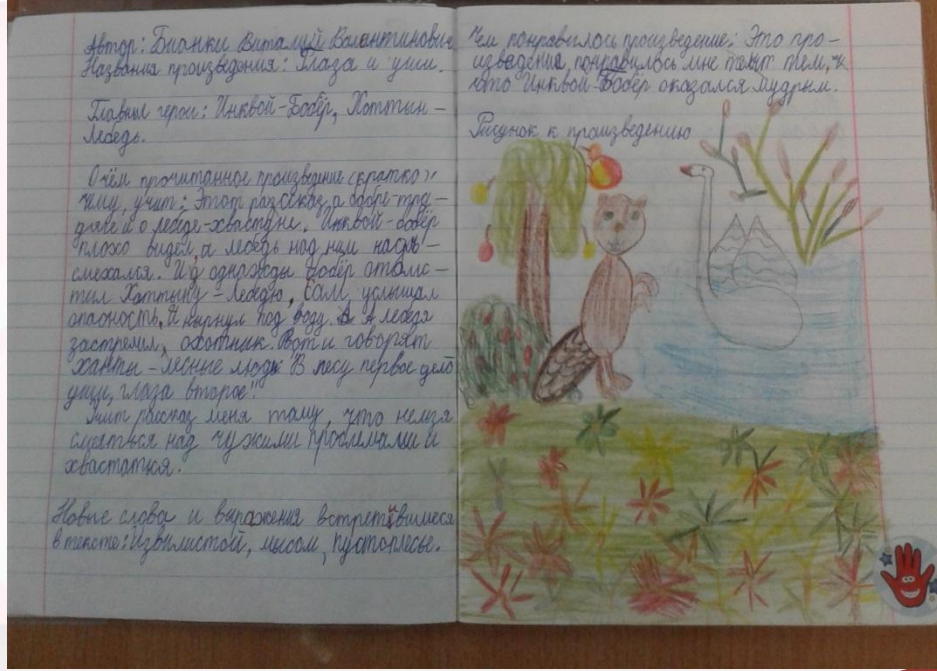 Автор: Бианки Виталий Валентинович
Названия произведения: Глаза и уши.
Главные герои: Инквой-Бобёр, Хоттын-
Лебедь.
О чём прочитанное произведение (кратко),
чему, учит: Этот рассказ о бобре-тру-
дяге и о лебеде-хвастуне. Инквой-бобёр
плохо видел, а лебедь над ним насм-
смехался. И однажды бобёр отомс-
тил Хоттыну-Лебедю, сам услышал
опасность, и нырнул под воду. А лебедя
застрелил охотник. Вот и говорят
ханты - лесные люди "В лесу первое дело
уши, глаза второе".
Учит рассказ меня тому, что нельзя
смеяться над чужими проблемами и
хвастаться.
Новые слова и выражения встретившиеся
в тексте: извилистой, мысом, пустоплесье.
Чем понравилось произведение: Это про-
изведение понравилось мне тем,
что Инквой-Бобёр оказался мудрым.
Рисунок к произведению